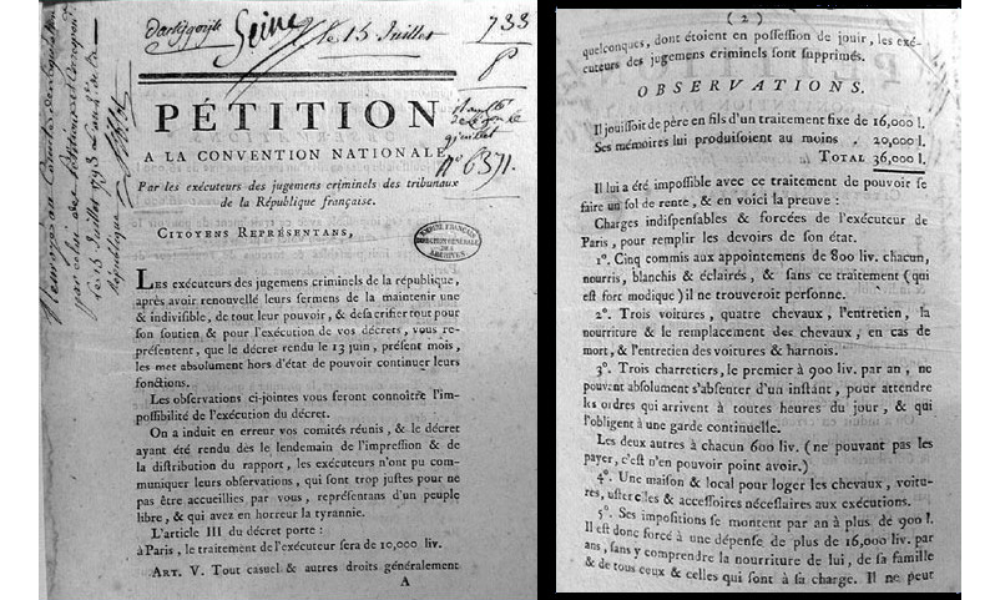 Seine
le 15 Juillet
733
P
n° 6371.
PÉTITION
A LA CONVENTION NATIONALE
Par les exécuteurs des jugemens criminels des tribunaux
de la République françaiſe.
CITOYENS REPRÉSENTANS,
LES exécuteurs des jugemens criminels de la république,
après avoir renouvellé leurs ſermens de la maintenir une
& indiviſible, de tout leur pouvoir, & de ſacrifier tout pour
ſon ſoutien & pour l'exécution de vos décrets, vous re-
préſentent, que le décret rendu le 13 juin, préſent mois,
les met abſolument hors d'état de pouvoir continuer leurs
fonctions.
Les obſervations ci-jointes vous feront connoître l'im-
poſſibilité de l'exécution du décret.
On a induit en erreur vos comités réunis, & le décret
ayant été rendu dès le lendemain de l'impreſſion & de
la diſtribution du rapport, les exécuteurs n'ont pu com-
muniquer leurs obſervations, qui ſont trop juſtes pour ne
pas être accueillies par vous, repréſentans d'un peuple
libre, & qui avez en horreur la tyrannie.
L'article III du décret porte :
à Paris, le traitement de l'exécuteur ſera de 10,000 liv.
ART. V. Tout caſuel & autres droits généralement
A
( 2 )
quelconques, dont étoient en poſſeſſion de jouir, les exé-
cuteurs des jugemens criminels ſont ſupprimés.
OBSERVATIONS.
Il jouiſſoit de père en fils d'un traitement fixe de 16,000 l.
Ses mémoires lui produiſoient au moins . 20,000 l.
TOTAL 36,000 l.
Il lui a été impoſſible avec ce traitement de pouvoir ſe
faire un ſol de rente, & en voici la preuve :
Charges indiſpenſables & forcées de l'exécuteur de
Paris, pour remplir les devoirs de ſon état.
1°. Cinq commis aux appointemens de 800 liv. chacun,
nourris, blanchis & éclairés, & ſans ce traitement (qui
eſt fort modique) il ne trouveroit perſonne.
2°. Trois voitures, quatre chevaux, l'entretien, la
nourriture & le remplacement des chevaux, en cas de
mort, & l'entretien des voitures & harnois.
3°. Trois charretiers, le premier à 900 liv. par an, ne
pouvant abſolument s'abſenter d'un inſtant, pour attendre
les ordres qui arrivent à toutes heures du jour, & qui
l'obligent à une garde continuelle.
Les deux autres à chacun 600 liv. (ne pouvant pas les
payer, c'eſt n'en pouvoir point avoir.)
4°. Une maiſon & local pour loger les chevaux, voitu-
res, uſtenciles & acceſſoires néceſſaires aux exécutions.
5°. Ses impoſitions ſe montent par an à plus de 900 l.
Il eſt donc forcé à une dépenſe de plus de 16,000 liv. par
ans, ſans y comprendre la nourriture de lui, de ſa famille
& de tous ceux & celles qui ſont à ſa charge. Il ne peut